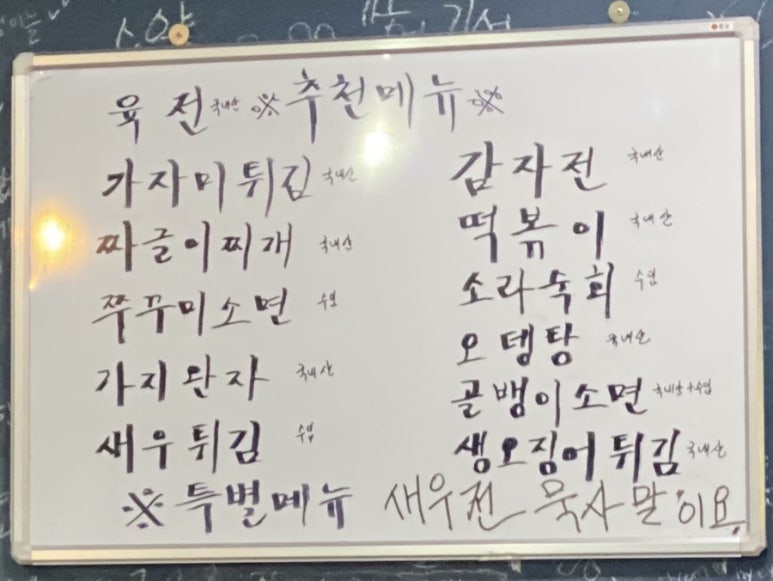 육전 국내산 ※추천메뉴※
가자미튀김 국내산
짜글이찌개 국내산
쭈꾸미소면 수입
가지완자 국내산
새우튀김 수입
감자전 국내산
떡볶이 국내산
소라숙회 수입
오뎅탕 국내산
골뱅이소면 국내산+수입
생오징어튀김 국내산
※특별메뉴 새우전 묵사말이요